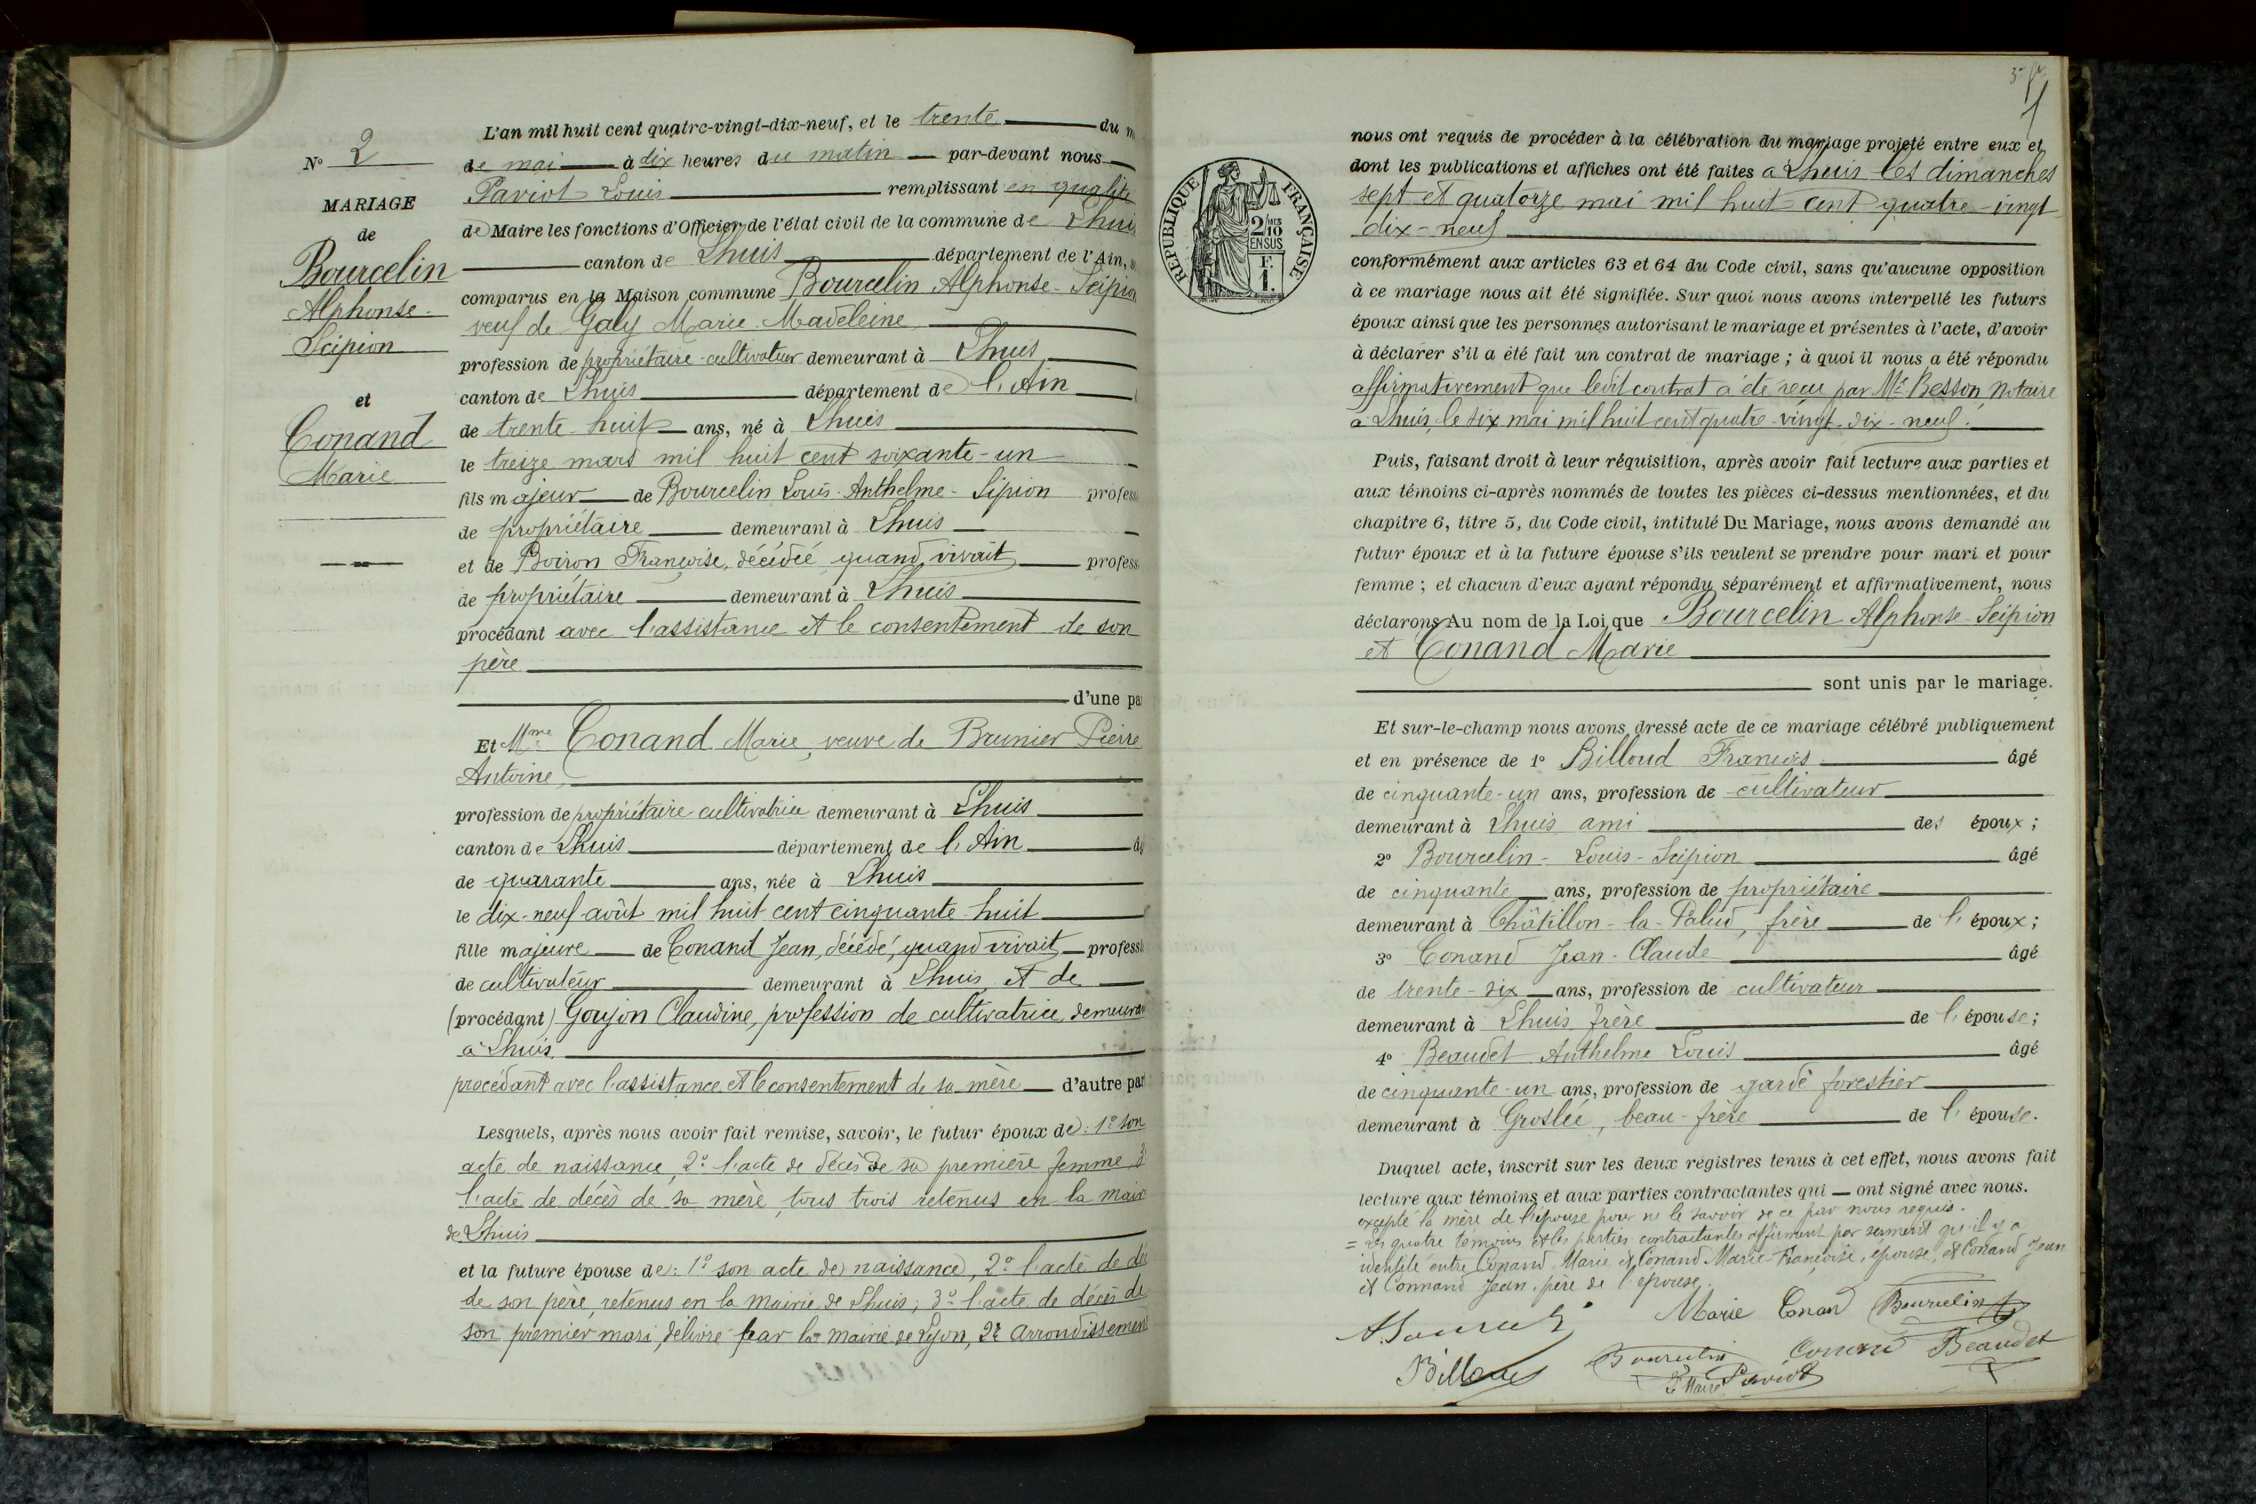 N° 2
MARIAGE
de
Bourcelin
Alphonse-
Scipion
et
Conand
Marie
L'an mil huit cent quatre-vingt-dix-neuf, et le trente du m
de mai à dix heures du matin par-devant nous
Paviot Louis remplissant en qualité
de Maire les fonctions d'Officier de l'état civil de la commune de Lhuis
canton de Lhuis département de l'Ain,
comparus en la Maison commune Bourcelin Alphonse-Scipion
veuf de Galy Marie-Madeleine
profession de propriétaire-cultivateur demeurant à Lhuis,
canton de Lhuis département de l'Ain
de trente-huit ans, né à Lhuis
le treize mars mil huit cent soixante-un
fils majeur de Bourcelin Louis-Anthelme-Sipion profess
de propriétaire demeurant à Lhuis
et de Boiron Françoise, décédée, quand vivait profess
de propriétaire demeurant à Lhuis
procédant avec l'assistance et le consentement de son
père
d'une pa
Et Mme Conand Marie, veuve de Brunier Pierre
Antoine,
profession de propriétaire-cultivatrice demeurant à Lhuis
canton de Lhuis département de l'Ain âg
de quarante ans, née à Lhuis
le dix-neuf août mil huit cent cinquante-huit
fille majeure de Conand Jean, décédé, quand vivait professi
de cultivateur demeurant à Lhuis, et de
(procédant) Goujon Claudine, profession de cultivatrice, demeuran
à Lhuis
procédant avec l'assistance et le consentement de sa mère d'autre par
Lesquels, après nous avoir fait remise, savoir, le futur époux de: 1° son
acte de naissance, 2° l'acte de décès de sa première femme 3
l'acte de décès de sa mère, tous trois retenus en la mairie
de Lhuis
et la future épouse de: 1° son acte de naissance, 2° l'acte de dé
de son père, retenus en la mairie de Lhuis; 3° l'acte de décès de
son premier mari, délivré par la mairie de Lyon, 2e arrondissement
RÉPUBLIQUE FRANÇAISE
2/10
EN SUS
F.
1.
nous ont requis de procéder à la célébration du mariage projeté entre eux et
dont les publications et affiches ont été faites à Lhuis les dimanches
sept et quatorze mai mil huit-cent quatre-vingt
dix-neuf
conformément aux articles 63 et 64 du Code civil, sans qu'aucune opposition
à ce mariage nous ait été signifiée. Sur quoi nous avons interpellé les futurs
époux ainsi que les personnes autorisant le mariage et présentes à l'acte, d'avoir
à déclarer s'il a été fait un contrat de mariage ; à quoi il nous a été répondu
affirmativement que ledit contrat a été reçu par Me Besson, notaire
à Lhuis, le six mai mil huit cent quatre-vingt-dix-neuf.
Puis, faisant droit à leur réquisition, après avoir fait lecture aux parties et
aux témoins ci-après nommés de toutes les pièces ci-dessus mentionnées, et du
chapitre 6, titre 5, du Code civil, intitulé Du Mariage, nous avons demandé au
futur époux et à la future épouse s'ils veulent se prendre pour mari et pour
femme ; et chacun d'eux ayant répondu séparément et affirmativement, nous
déclarons Au nom de la Loi que Bourcelin Alphonse-Scipion
et Conand Marie
sont unis par le mariage.
Et sur-le-champ nous avons dressé acte de ce mariage célébré publiquement
et en présence de 1° Billoud François âgé
de cinquante-un ans, profession de cultivateur
demeurant à Lhuis ami des époux ;
2° Bourcelin-Louis-Scipion âgé
de cinquante ans, profession de propriétaire
demeurant à Châtillon-la-Palud, frère de l' époux ;
3° Conand Jean-Claude âgé
de trente-six ans, profession de cultivateur
demeurant à Lhuis frère de l' épouse ;
4° Beaudet Anthelme Louis âgé
de cinquante-un ans, profession de garde forestier
demeurant à Groslée, beau-frère de l' épouse.
Duquel acte, inscrit sur les deux registres tenus à cet effet, nous avons fait
lecture aux témoins et aux parties contractantes qui ont signé avec nous.
excepté la mère de l'épouse pour ne le savoir de ce par nous requis.
= les quatre témoins et les parties contractantes affirment par serment qu'il y a
identité entre Conand Marie et Conand Marie-Françoise, épouse, et Conand Jean
et Connand Jean, père de l'épouse.
Marie Conand Bourcelin
Billoud Bourcelin Conand Beaudet
Le Maire Paviot